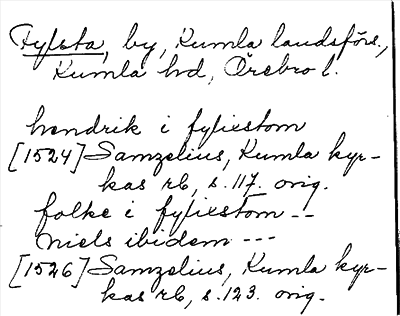 Fylsta, by, Kumla landsförs.,
Kumla hd, Örebro l.
hendrik i fylixstom
[1524] Samzelius, Kumla kyr-
kas rb, s. 117. orig.
folke i fylixstom --
Niels ibidem ---
[1526] Samzelius, Kumla kyr-
kas rb, s. 123. orig.